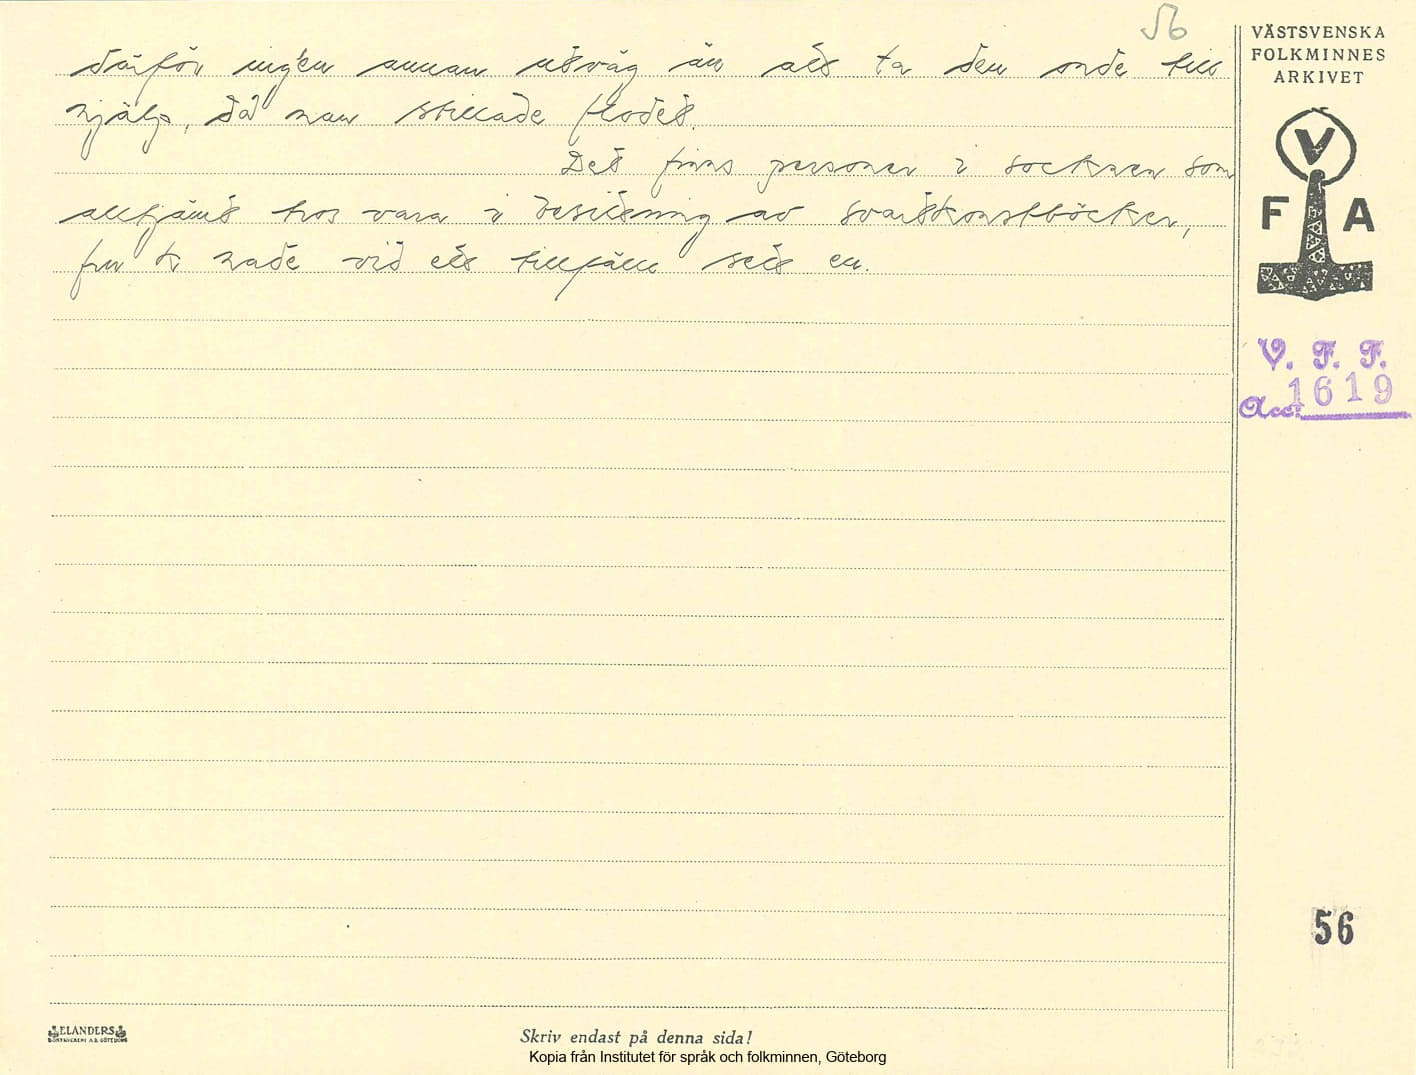 56
därför ingen annan utväg än att ta den onde till
hjälp, då man stillade flodet.
Det finns personer i socknen som
alltjämt tros vara i besittning av svartkonstböcker,
fru K hade vid ett tillfälle sett en.
VÄSTSVENSKA
FOLKMINNES
ARKIVET
V
F A
V. F. F.
Acc: 1619
56
ELANDERS
BOKTRYCKERI A.B. GÖTEBORG
Skriv endast på denna sida!
Kopia från Institutet för språk och folkminnen, Göteborg